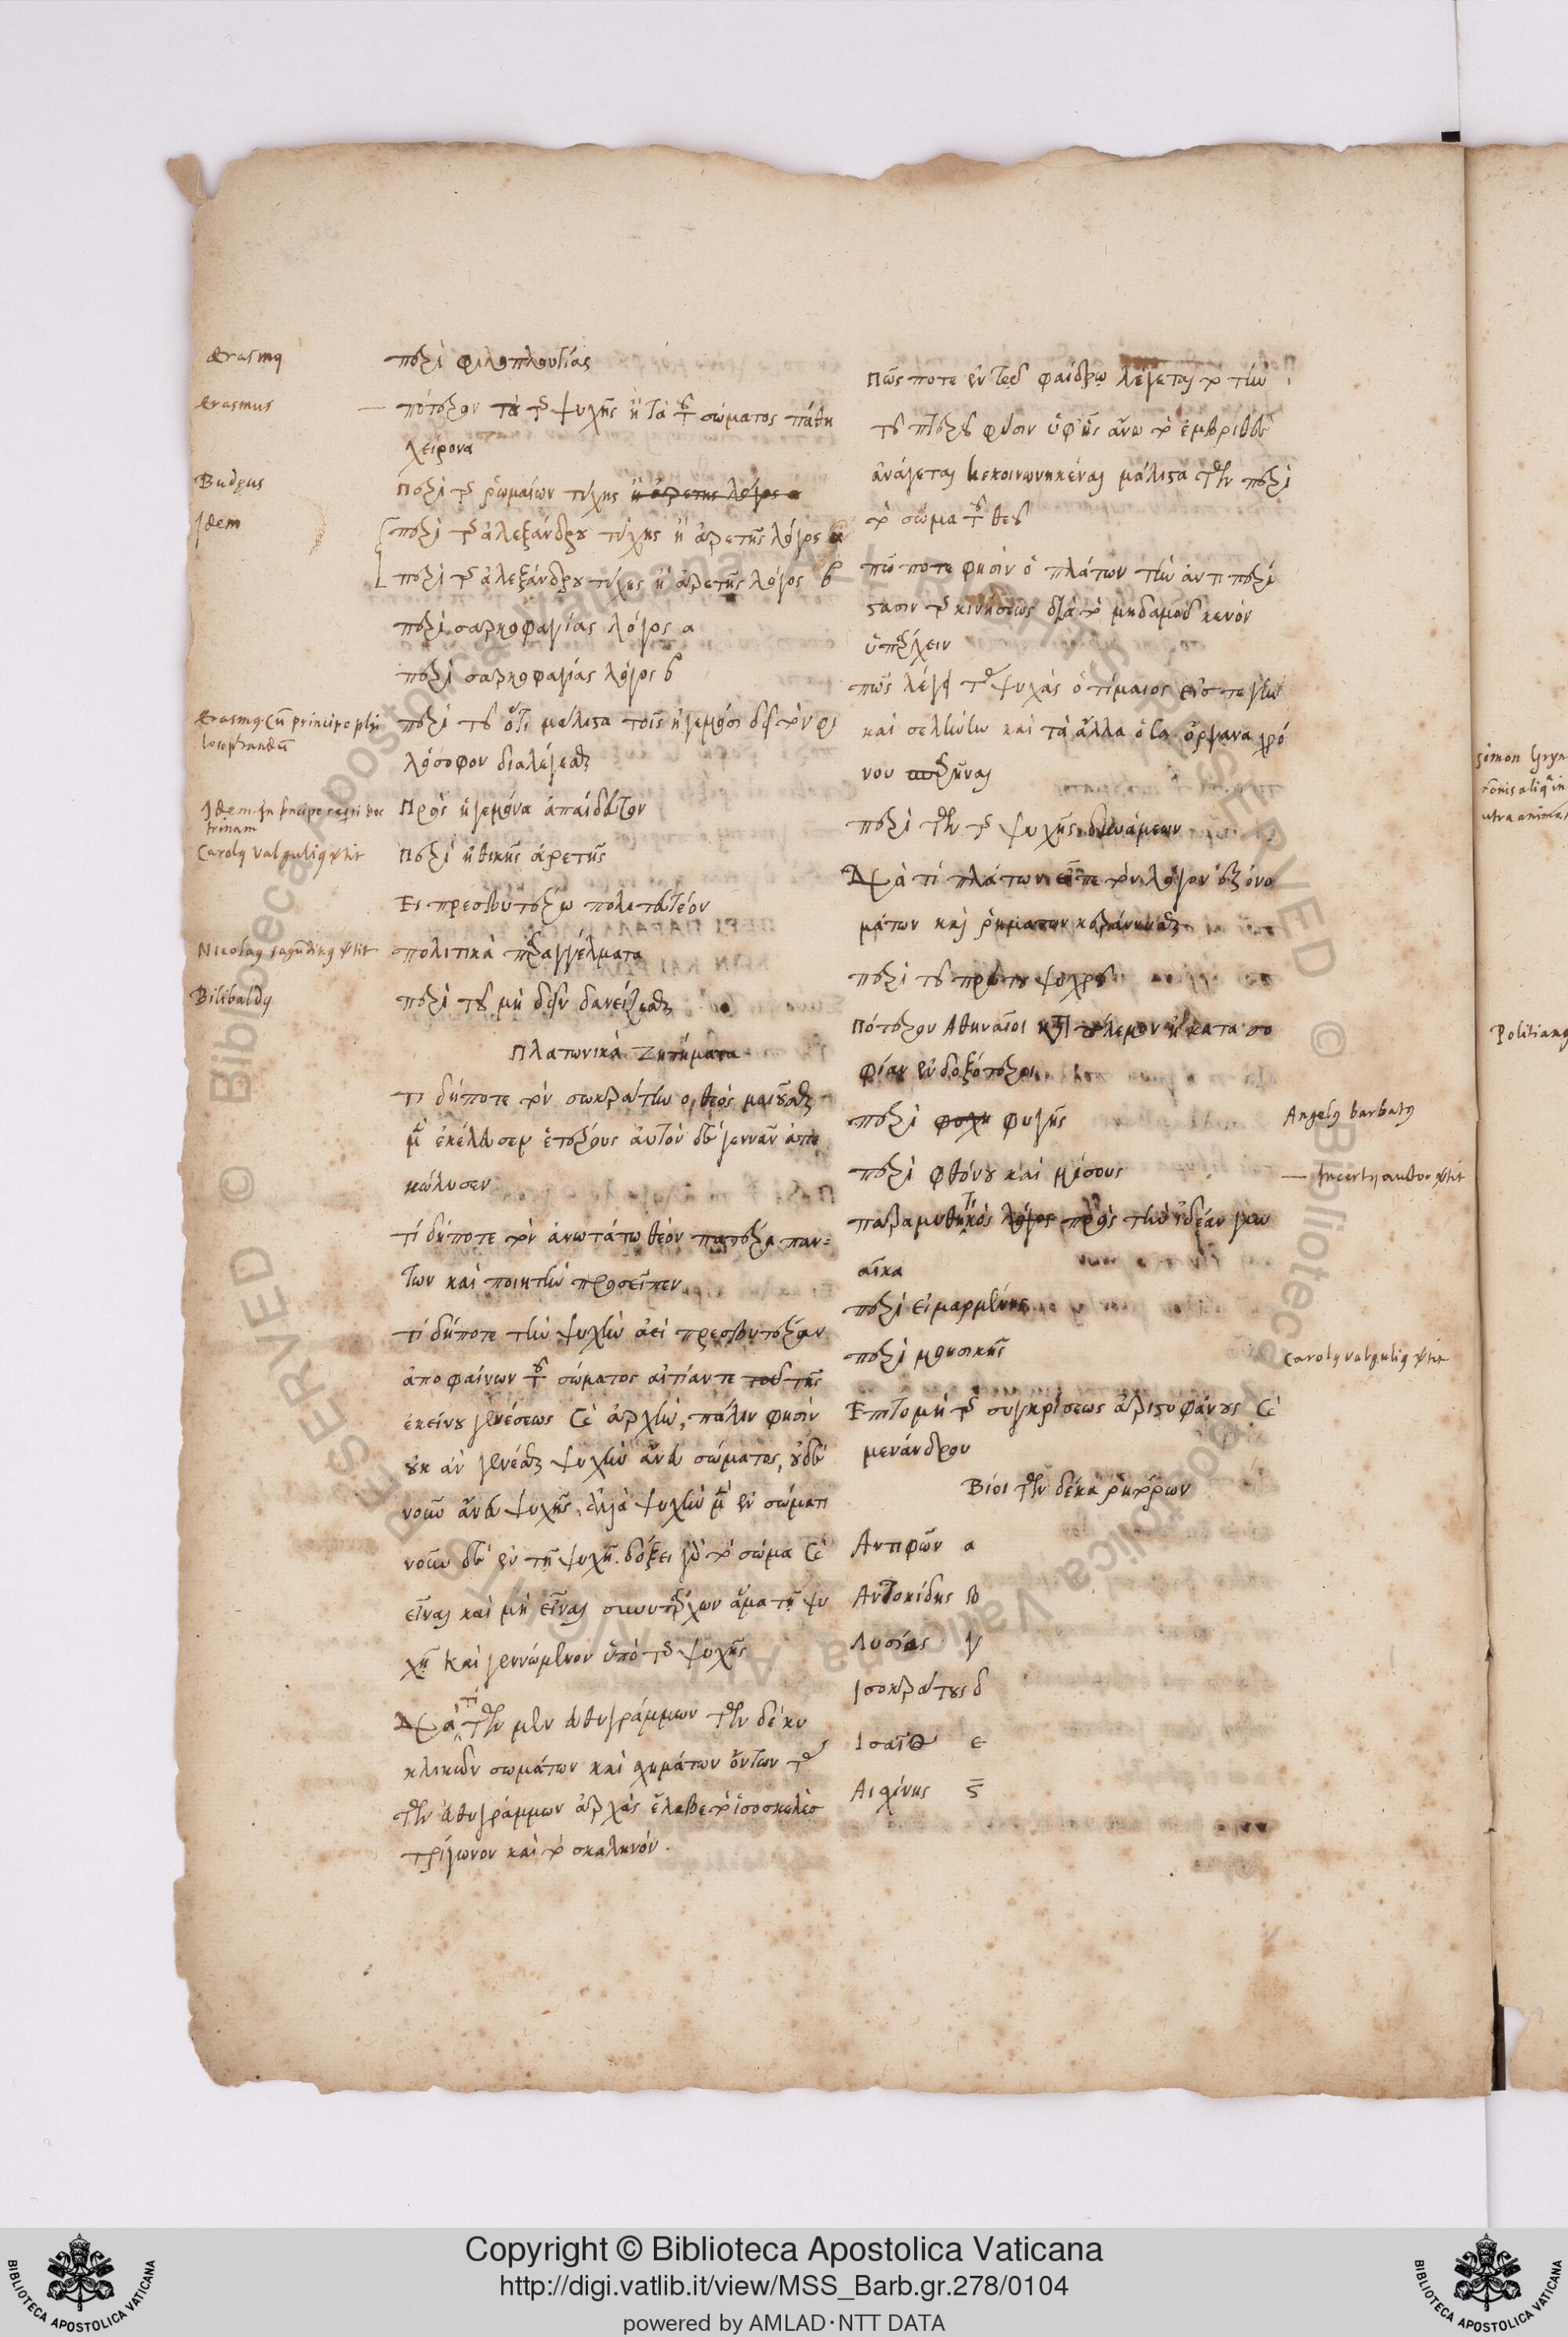 Erasmus
περὶ φιλοπλουτίας
Erasmus
πότερον τὰ τῆς ψυχῆς ἢ τὰ τοῦ σώματος πάθη
χείρονα
Budęus
Περὶ τῆς ῥωμαίων τύχης ἢ ἀρετης λόγος α
Idem
περὶ τῆς ἀλεξάνδρου τύχης ἢ ἀρετῆς λόγος α
περὶ τῆς ἀλεξάνδρου τύχης ἢ ἀρετῆς λόγος β
περὶ σαρκοφαγίας λόγος α
περὶ σαρκοφαγίας λόγος β
Erasmus Cum principe phi
losophandum
περὶ τοῦ ὅτι μάλιστα τοῖς ἡγεμόσι δεῖ τὸν φι
λόσοφον διαλέγεσθαι
Idem In principe requiri doc
trinam
Πρὸς ἡγεμόνα ἀπαίδευτον
Carolus Valgulius vertit
Περὶ ἠθικῆς ἀρετῆς
Ει πρεσβυτέρῳ πολιτευτέον
Nicolaus sagundinus vertit
πολιτικὰ παραγγέλματα
Bilibaldus
περὶ τοῦ μὴ δεῖν δανείζεσθαι
Πλατωνικὰ Ζητήματα
τι δήποτε τὸν σωκράτην ο θεός μαιοῦσθαι
μὲν ἐκέλευσεν ἑτέρους αὐτὸν δὲ γεννᾶν ἀπε
κώλυσεν
τί δήποτε τὸν ἀνωτάτω θεὸν πατέρα παν=
των καὶ ποιητὴν προσεῖπεν
τί δήποτε τὴν ψυχὴν ἀεὶ πρεσβυτέραν
ἀποφαίνων τοῦ σώματος αἰτίαν τε τοῦ τῆς
ἐκείνου γενέσεως καὶ ἀρχὴν, πάλιν φησὶν
οὐκ ἀν γενέσθαι ψυχὴν ἄνευ σώματος, οὐδὲ
νοῦν ἄνευ ψυχῆς, ἀλλὰ ψυχὴν μὲν ἐν σώματι
νοῦν δὲ ἐν τῇ ψυχῇ. δόξει γὰρ τὸ σῶμα καὶ
εἶναι καὶ μὴ εἶναι συνυπάρχων ἅμα τῇ ψυ
χῇ καὶ γεννώμενον ὑπὸ τῆς ψυχῆς
Διὰ τί τῶν μὲν εὐθυγράμμων τῶν δὲ κυ
κλικῶν σωμάτων καὶ σχημάτων ὄντων τὰς
τῶν εὐθυγράμμων ἀρχὰς ἔλαβε τὸ ἰσοσκελὲς
τρίγωνον καὶ τὸ σκαληνόν.
Πῶς ποτε ἐν τῷ φαίδρῳ λέγεται τὸ τὴν
τοῦ πτεροῦ φύσιν ὑφ' ἧς ἄνω τὸ ἐμβριθὲς
ἀνάγεται κεκοινωνηκέναι μάλιστα τῶν περὶ
τὸ σῶμα τοῦ θεοῦ
πῶς ποτε φησὶν ὁ πλάτων τὴν ἀντιπερί
στασιν τῆς κινήσεως διὰ τὸ μηδαμοῦ κενὸν
ὑπάρχειν
πῶς λέγει τὰς ψυχὰς ὁ τίμαιος εἴς τε γῆν
καὶ σελήνην καὶ τὰ ἄλλα ὅσα ὄργανα χρό
νου σπαρῆναι
περὶ τῶν τῆς ψυχῆς δυνάμεων
Διὰ τί πλάτων εἶπε τὸν λόγον ἐξ ὀνο
μάτων καὶ ῥημάτων κεράννυσθαι
περὶ τοῦ πρώτου ψυχροῦ
Πότερον Αθηναῖοι κατὰ πόλεμον ἢ κατα σο
φίαν ἐνδοξότεροι
περὶ φυχη φυγῆς
Angelus barbatus
περὶ φθόνου καὶ μίσους
Incertus autor vertit
παραμυθητικὸς λόγος πρὸς τὴν ἰδίαν γυν
αῖκα
περὶ εἱμαρμένης
περὶ μουσικῆς
Carolus valgulius vertit
Επιτομὴ τῆς συγκρίσεως ἀριστοφάνους καὶ
μενάνδρου
Βίοι τῶν δέκα ῥητόρων
Αντιφῶν α
Ανδοκίδης β
Λυσίας γ
Ισοκράτους δ
Ισαῖος ε
Αισχίνης ϛ
Politianus
Copyright © Biblioteca Apostolica Vaticana
http://digi.vatlib.it/view/MSS_Barb.gr.278/0104
powered by AMLAD·NTT DATA
BIBLIOTECA APOSTOLICA VATICANA
BIBLIOTECA APOSTOLICA VATICANA